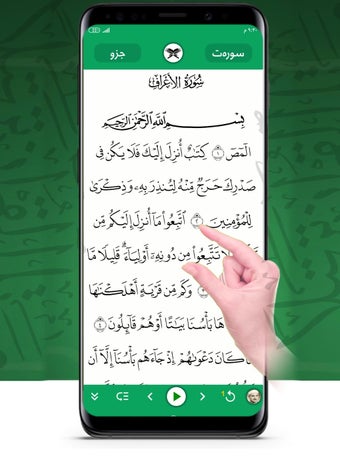 ۹:۴۰ م
سورەت
جزو
سُورَةُ الأَعْرَافِ
بِسْمِ اللَّهِ الرَّحْمَٰنِ الرَّحِيمِ
الٓمٓصٓ ۝١ كِتَٰبٌ أُنزِلَ إِلَيْكَ فَلَا يَكُن فِى
صَدْرِكَ حَرَجٌ مِّنْهُ لِتُنذِرَ بِهِۦ وَذِكْرَىٰ
لِلْمُؤْمِنِينَ ۝٢ ٱتَّبِعُوا۟ مَآ أُنزِلَ إِلَيْكُم مِّن
تَتَّبِعُوا۟ مِن دُونِهِۦٓ أَوْلِيَآءَ ۗ قَلِيلًا مَّا
وَكَم مِّن قَرْيَةٍ أَهْلَكْنَٰهَا
هَا بَأْسُنَا بَيَٰتًا أَوْ هُمْ قَآئِلُونَ ۝٤
كَانَ دَعْوَىٰهُمْ إِذْ جَآءَهُم بَأْسُنَآ إِلَّآ أَن